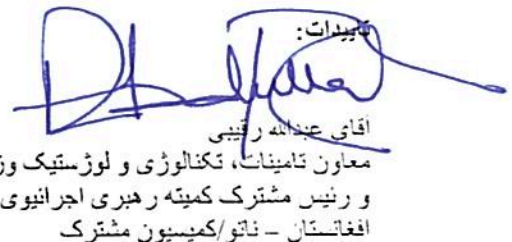 تاییدات:
آقای عبدالله رقیبی
معاون تامینات، تکنالوژی و لوژستیک وز
و رئیس مشترک کمیته رهبری اجرائیوی
افغانستان – ناتو/کمیسیون مشترک